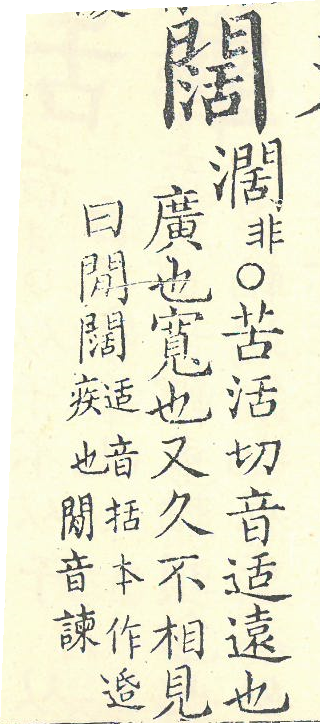 闊
濶非○苦活切音适遠也
廣也寬也又久不相見
曰閒闊
适音括本作
疾也閒音諫